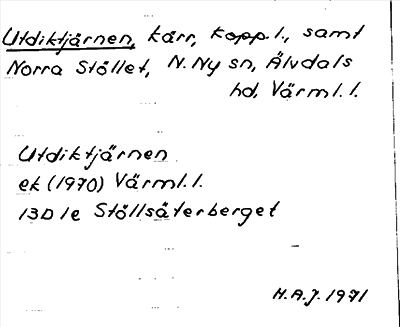 Utdiktjärnen, kärr, Kopp.l., samt
Norra Stöllet, N. Ny sn, Älvdals
hd, Värml.l.
Utdiktjärnen
ek (1970) Värml.l.
13D 1e Stöllsäterberget
H.A.J. 1971